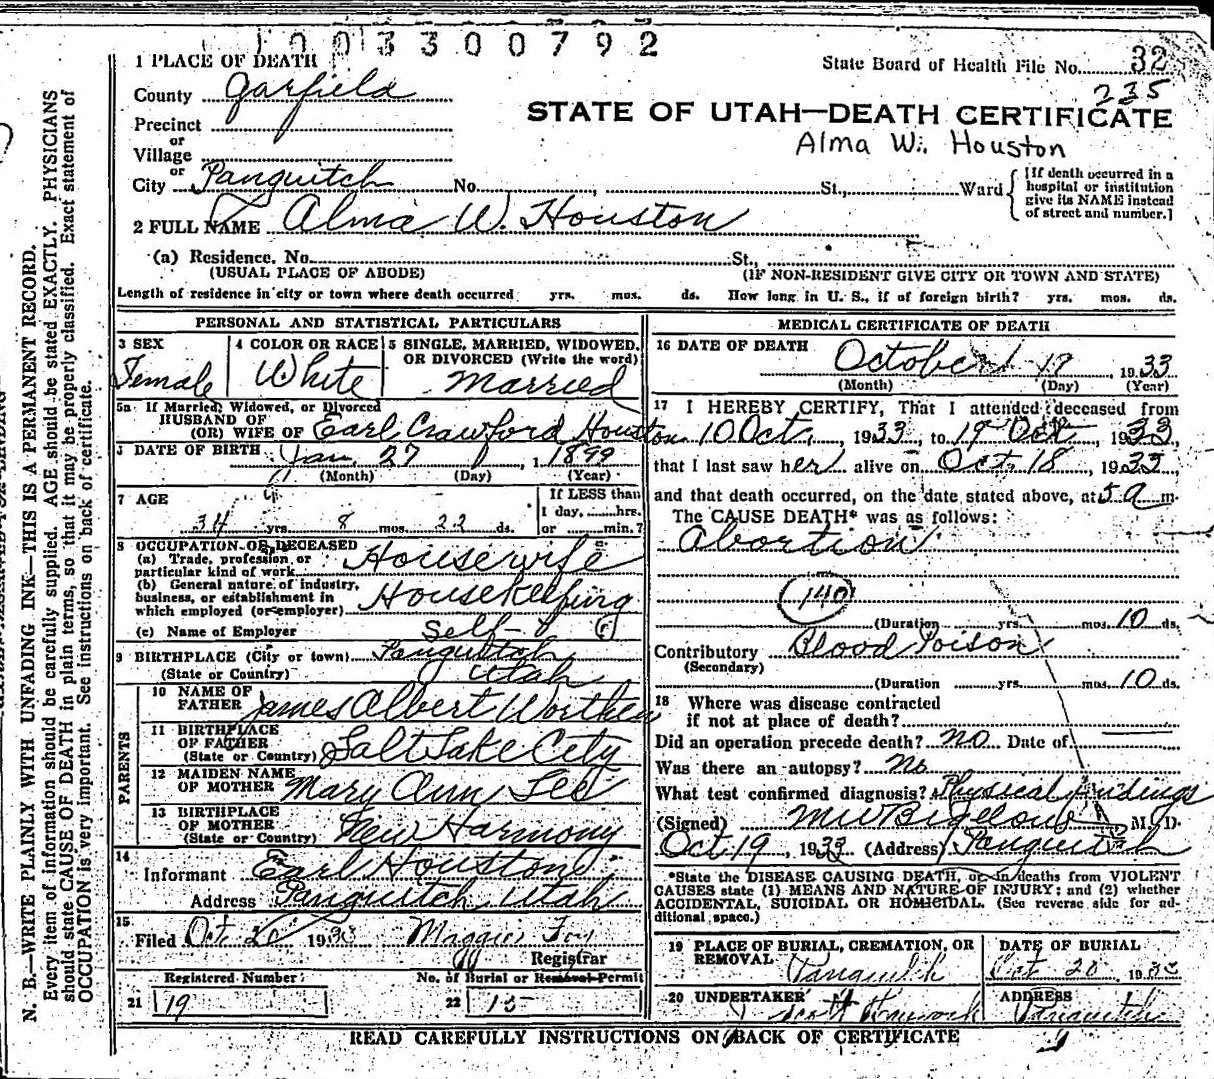 1003300792
1 PLACE OF DEATH
State Board of Health File No. 32
235
County Garfield
STATE OF UTAH—DEATH CERTIFICATE
Precinct
Alma W. Houston
or
Village
or
City Panguitch No. , St., Ward
[If death occurred in a
hospital or institution
give its NAME instead
of street and number.]
2 FULL NAME Alma W. Houston
(a) Residence. No. St.,
(USUAL PLACE OF ABODE) (IF NON-RESIDENT GIVE CITY OR TOWN AND STATE)
Length of residence in city or town where death occurred yrs. mos. ds. How long in U. S., if of foreign birth? yrs. mos. ds.
PERSONAL AND STATISTICAL PARTICULARS
3 SEX
Female
4 COLOR OR RACE
White
5 SINGLE, MARRIED, WIDOWED,
OR DIVORCED (Write the word)
Married
5a If Married, Widowed, or Divorced
HUSBAND OF
(OR) WIFE OF Earl Crawford Houston
DATE OF BIRTH Jan. 27, 1899
(Month) (Day) (Year)
7 AGE
34 yrs. 8 mos. 22 ds.
If LESS than
1 day, hrs.
or min.?
8 OCCUPATION OF DECEASED
(a) Trade, profession or
particular kind of work Housewife
(b) General nature of industry,
business, or establishment in
which employed (or employer) Housekeeping
(c) Name of Employer Self
9 BIRTHPLACE (City or town) Panguitch
(State or Country) Utah
PARENTS
10 NAME OF
FATHER James Albert Worthen
11 BIRTHPLACE
OF FATHER
(State or Country) Salt Lake City
12 MAIDEN NAME
OF MOTHER Mary Ann Lee
13 BIRTHPLACE
OF MOTHER
(State or Country) New Harmony
14
Informant Earl Houston
Address Panguitch, Utah
15
Filed Oct 20 1933 Maggie Foy
Registrar
Registered Number
21 19
No. of Burial or Removal Permit
22 15
MEDICAL CERTIFICATE OF DEATH
16 DATE OF DEATH October 19, 1933
(Month) (Day) (Year)
17 I HEREBY CERTIFY, That I attended deceased from
10 Oct., 1933, to 19 Oct, 1933,
that I last saw her alive on Oct. 18, 1933,
and that death occurred, on the date stated above, at 5 a m.
The CAUSE DEATH* was as follows:
Abortion
140
(Duration yrs. mos. 10 ds.
Contributory Blood Poison
(Secondary)
(Duration yrs. mos. 10 ds.
18 Where was disease contracted
if not at place of death?
Did an operation precede death? no Date of
Was there an autopsy? No
What test confirmed diagnosis? Physical findings
(Signed) M W Bigelow M. D.
Oct 19, 1933 (Address) Panguitch
*State the DISEASE CAUSING DEATH, or in deaths from VIOLENT
CAUSES state (1) MEANS AND NATURE OF INJURY; and (2) whether
ACCIDENTAL, SUICIDAL OR HOMICIDAL. (See reverse side for ad-
ditional space.)
19 PLACE OF BURIAL, CREMATION, OR
REMOVAL
Panguitch
DATE OF BURIAL
Oct 20 1933
20 UNDERTAKER
Scott
ADDRESS
Panguitch
READ CAREFULLY INSTRUCTIONS ON BACK OF CERTIFICATE
N. B.—WRITE PLAINLY WITH UNFADING INK—THIS IS A PERMANENT RECORD.
Every item of information should be carefully supplied. AGE should be stated EXACTLY. PHYSICIANS
should state CAUSE OF DEATH in plain terms, so that it may be properly classified. Exact statement of
OCCUPATION is very important. See instructions on back of certificate.